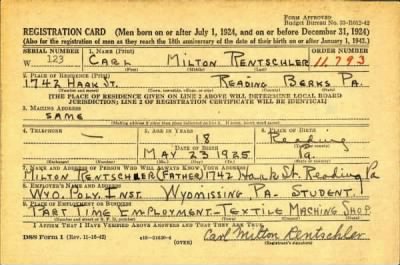 FORM APPROVED
Budget Bureau No. 33-R012-42
REGISTRATION CARD (Men born on or after July 1, 1924, and on or before December 31, 1924)
(Also for the registration of men as they reach the 18th anniversary of the date of their birth on or after January 1, 1943.)
SERIAL NUMBER 1. NAME (Print) ORDER NUMBER
W 123 CARL MILTON RENTSCHLER 11,793
(First) (Middle) (Last)
2. PLACE OF RESIDENCE (Print)
1742 HAAK ST. READING BERKS PA.
(Number and street) (Town, township, village, or city) (County) (State)
[THE PLACE OF RESIDENCE GIVEN ON LINE 2 ABOVE WILL DETERMINE LOCAL BOARD
JURISDICTION; LINE 2 OF REGISTRATION CERTIFICATE WILL BE IDENTICAL]
3. MAILING ADDRESS
SAME
4. TELEPHONE 5. AGE IN YEARS 6. PLACE OF BIRTH
— 18 Reading
DATE OF BIRTH
MAY 23 1925 Pa.
7. NAME AND ADDRESS OF PERSON WHO WILL ALWAYS KNOW YOUR ADDRESS
MILTON RENTSCHLER (FATHER) 1742 Haak St. Reading Pa
8. EMPLOYER'S NAME AND ADDRESS
WYO. POLY. INST. WYOMISSING, PA. STUDENT
9. PLACE OF EMPLOYMENT OR BUSINESS
PART TIME EMPLOYMENT - TEXTILE MACHINE SHOP
I AFFIRM THAT I HAVE VERIFIED ABOVE ANSWERS AND THAT THEY ARE TRUE.
DSS Form 1 (Rev. 11-16-42)
(OVER)
Carl Milton Rentschler
(Registrant's signature)